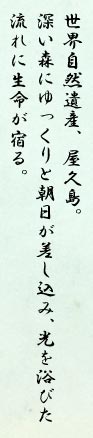 世界自然遺産、屋久島。
深い森にゆっくりと朝日が差し込み、光を浴びた
流れに生命が宿る。